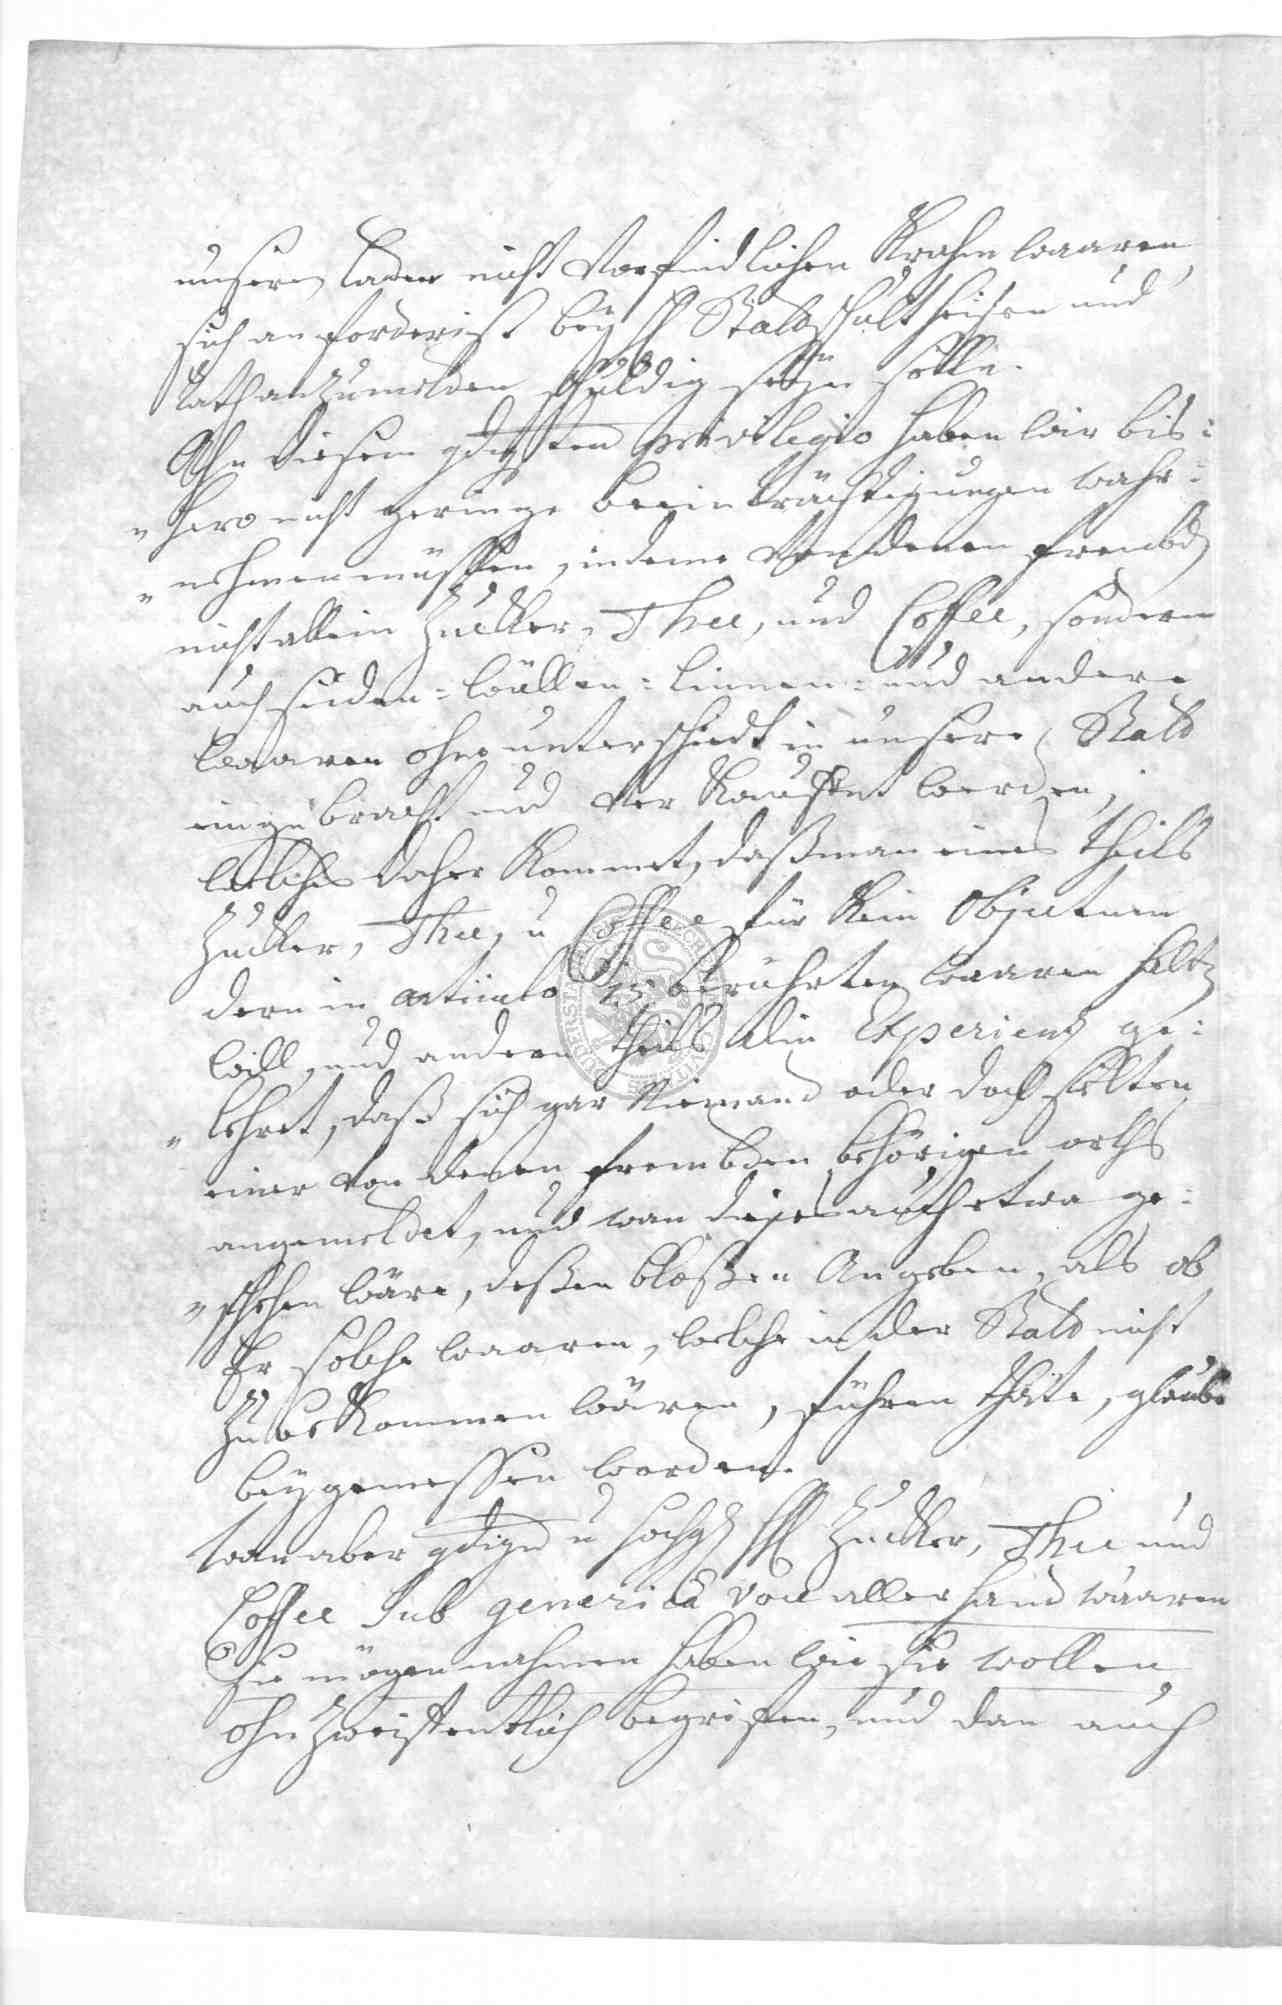 unseren laden nicht vorfindlichen Krahm waaren,
sich anforderist bey H Stadtschultheisen und
Rath anzumelden schuldig seyn solle.
Ahn diesem gdigsten privilegio haben wir bis:
„hero nicht geringe beeinträchtigungen wahr:
„nehmen müssen, indeme von denen frembd
nicht allein Zucker, Thee, und Coffee, sondern
auch seiden: wüllen: linnen: und andere
waaren ohne unterschiedt in unsere Stadt
eingebracht und verkauffet werden,
welches daher kommet, daß man eines theils
Zucker, Thee, u Coffee für kein Objectum
deren in articulo 15 berührten waaren halt
will, und andern theils die Experienz ge:
„lehret, daß sich gar Niemand oder doch selten
einer von denen frembden behörigen orths
angemeldet, und wan dieses auch etwa ge:
„schehen wäre, deßen bloßen Angeben, als ob
Er solche waaren, welche in der Stadt nicht
zu bekommen wären, führen thäte, glaube
beygemessen worden.
wan aber gdige u hochg H Zucker, Thee und
Coffee Sub generica von allerhand waaren
Sie mögen nahmen haben wie sie wollen
ohnzweiffentlich begriffen, und dan auch